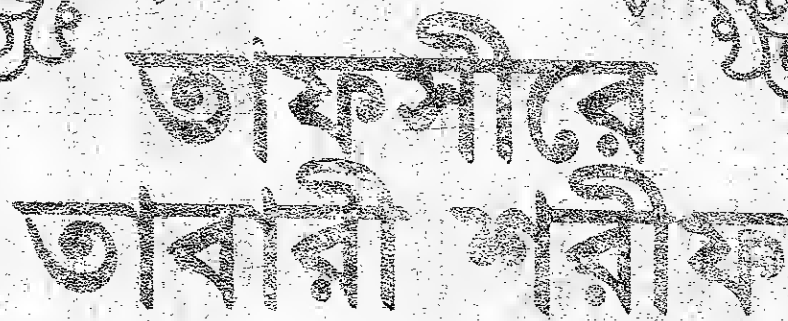 তাফসীরে
তাবারী শরীফ